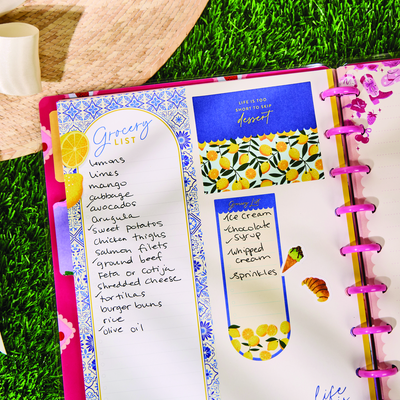 Grocery
LIST
lemons
limes
mango
cabbage
avocados
arugula
sweet potatos
chicken thighs
salmon filets
ground beef
feta or cotija
shredded cheese
tortillas
burger buns
rice
olive oil
LIFE IS TOO
SHORT TO SKIP
dessert
Grocery list
Ice Cream
chocolate
syrup
whipped
cream
sprinkles
life